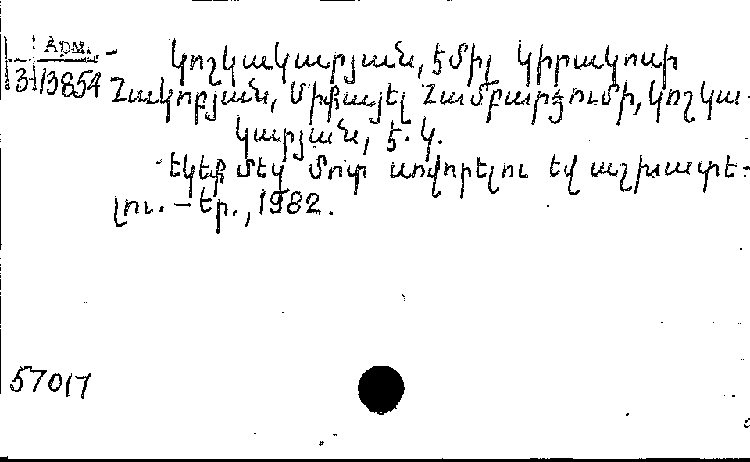 Арм.
3-13854
Կոշկակարյան, Էմիլ Կիրակոսի
Հակոբյան, Միքայել Համբարձումի, Կոշկա-
կարյան, Է. Կ.
Եկեք մեզ մոտ սովորելու եվ աշխատե-
լու. – Եր., 1982.
57017